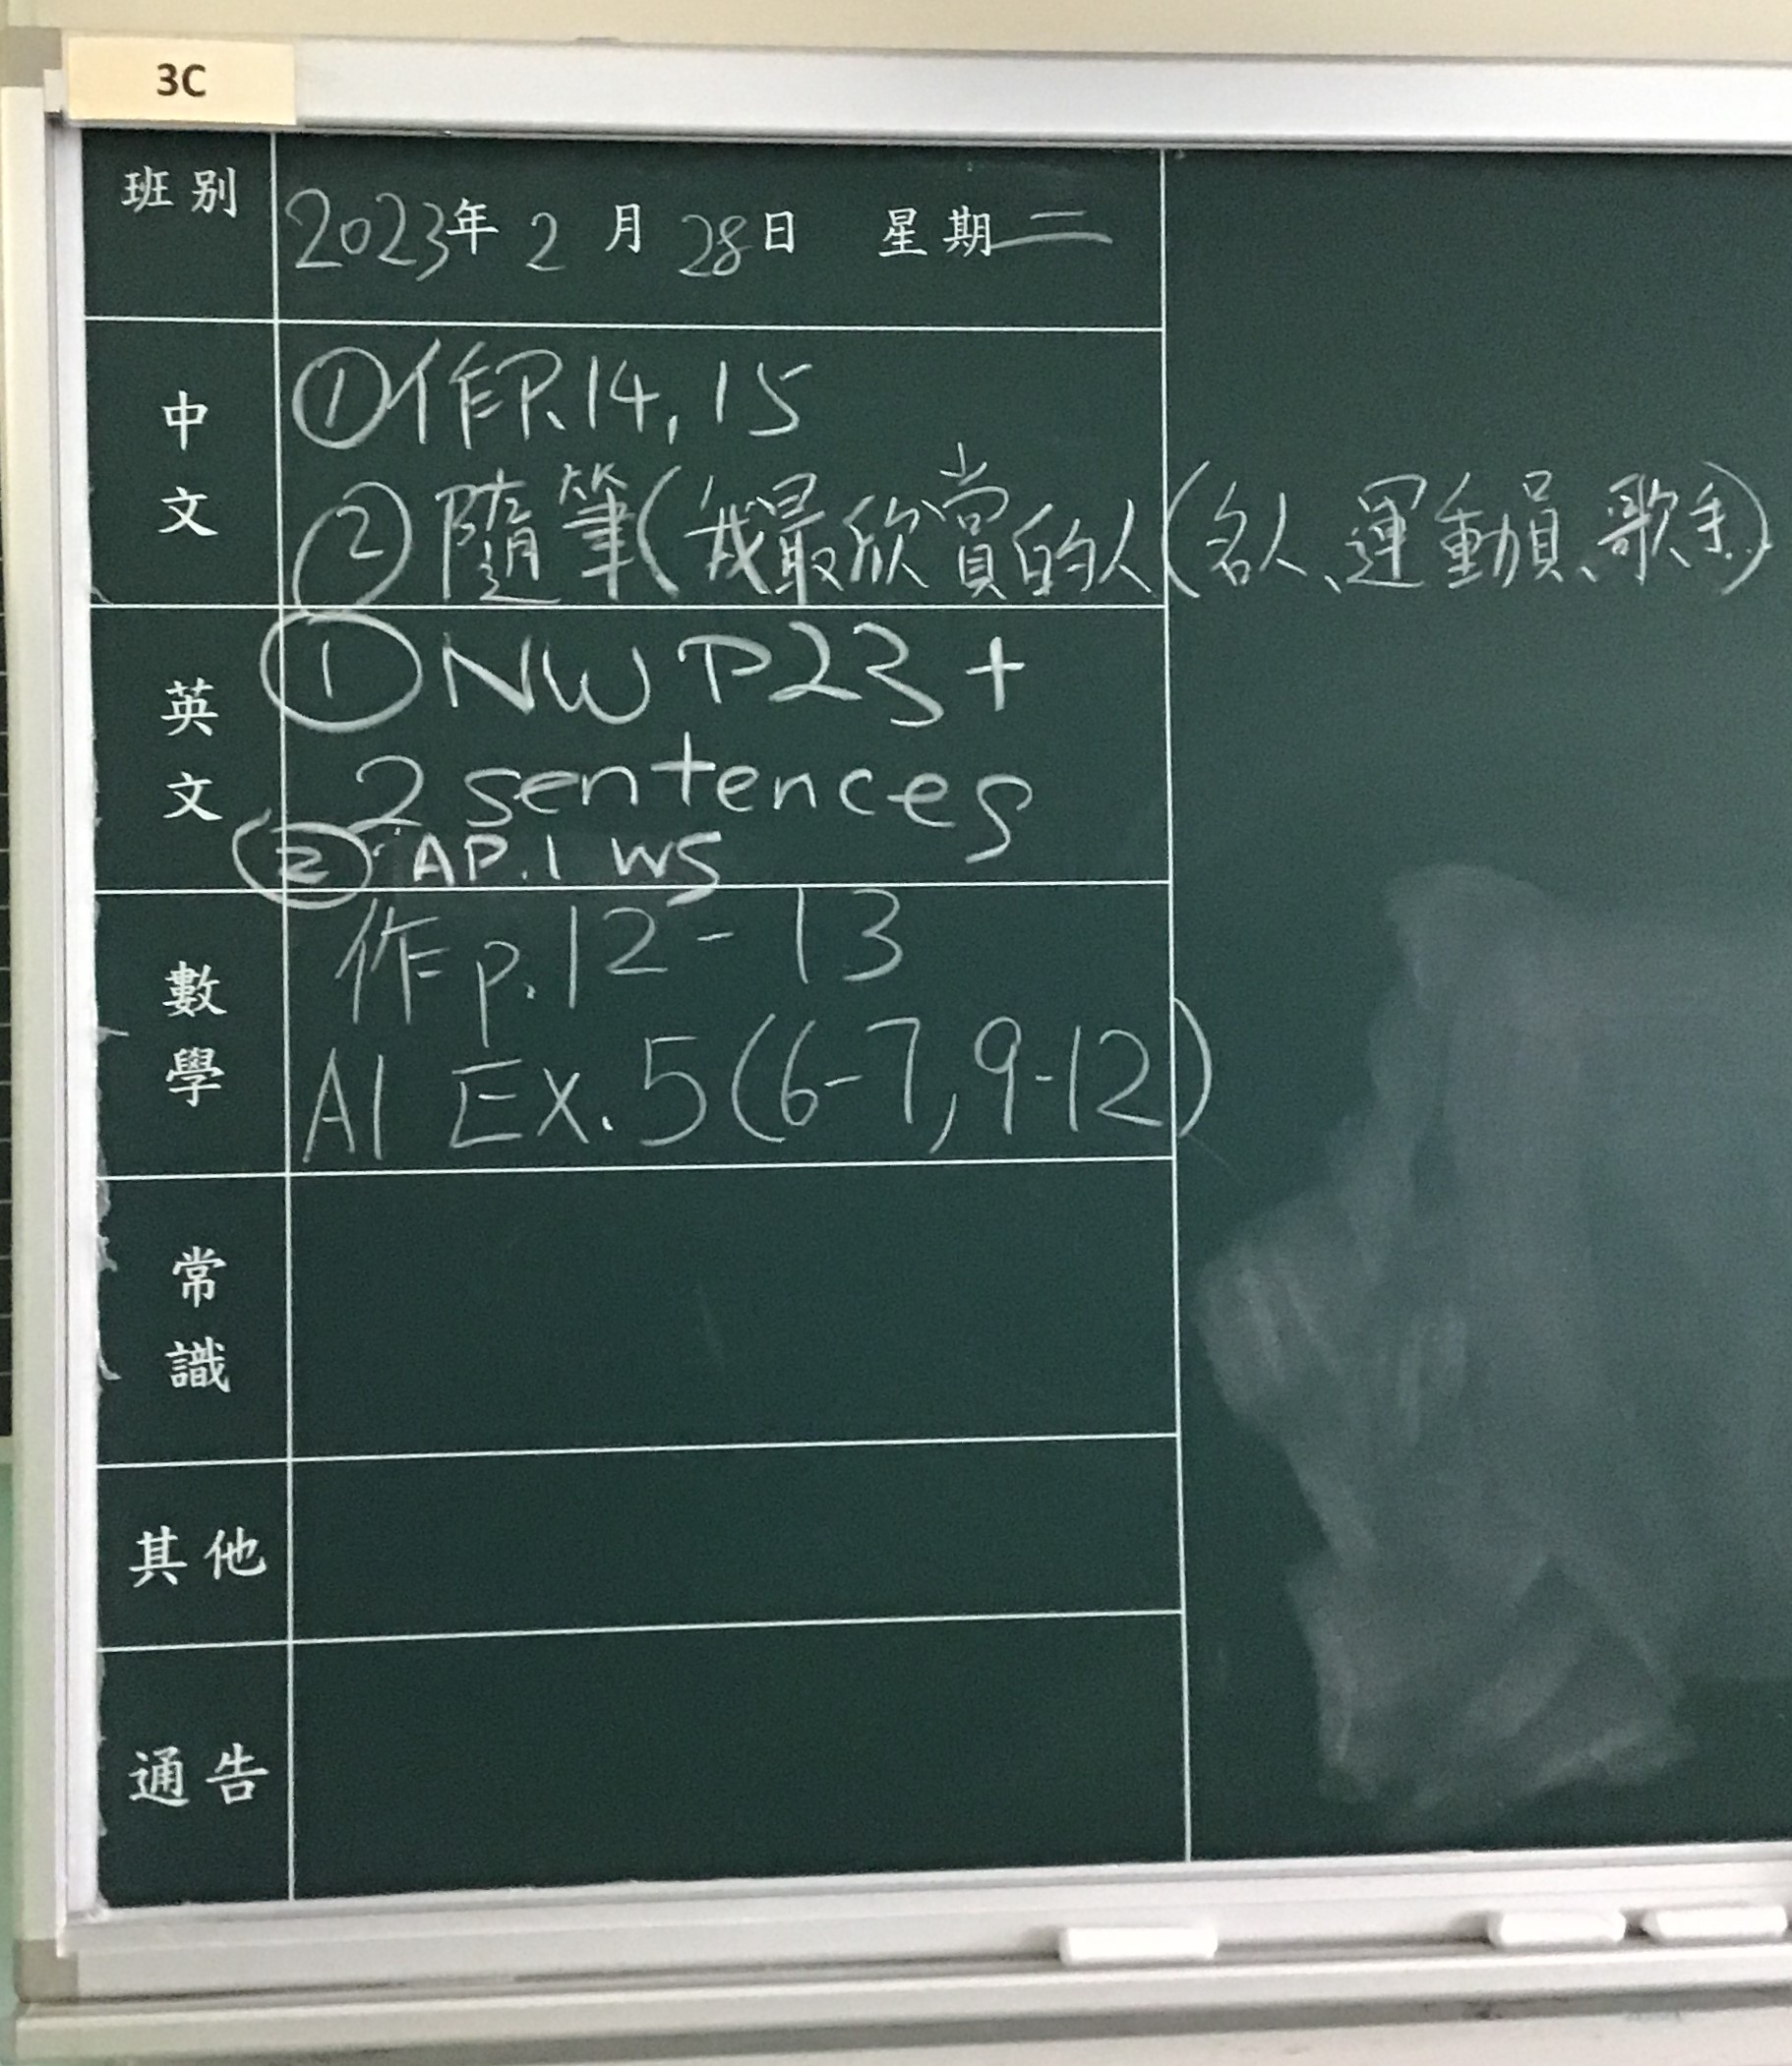 3C
班別 2023年 2 月 28日 星期二
中文 ①作P.14, 15
②隨筆(我最欣賞的人(名人、運動員、歌手…)
英文 ①NW P23 +
2 sentences
② AP.1 WS
數學 作p.12 - 13
A1 EX.5(6-7, 9-12)
常識
其他
通告